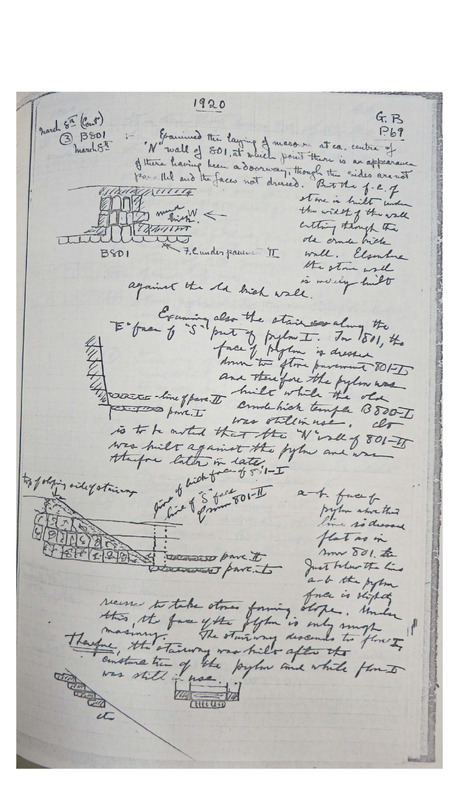 1920
G.B
P69
March 8th (Cont)
③ B801
March 8th
:- Examined the laying of masonry at ca. centre of
"N" wall of 801, at which point there is an appearance
of there having been a doorway, though the sides are not
parallel and the faces not dressed. But the f.c. of
stone is built under
the width of the wall
cutting through the
old crude brick
wall. Elsewhere
the stone wall
is merely built
against the old brick wall.
mud
brick
N
B801
F.C under pavement II
Examining also the stair along the
"E" face of "S" part of pylon I. In 801, the
face of pylon is dressed
down to floor pavement 801-I
and therefore the pylon was
built while the old
crude brick temple B800-I
was still in use. Also
is to be noted that the "N" wall of 801-II
was built against the pylon and was
therefore later in date.
line of pave. II
pave. I
top of sloping side of stairway
line of back face of
line of "S" face
of room 801-II
pave. II
pave. I
a-b. face of
pylon above this
line is dressed
flat as in
room 801. 
Just below the line
a-b the pylon
face is slightly
recesse to take stones forming slope. Under
this, the face of the pylon is only rough
masonry. The stairway descends to floor I,
Therefore, the stairway was built after the
construction of the pylon and while floor I
was still in use.
etc